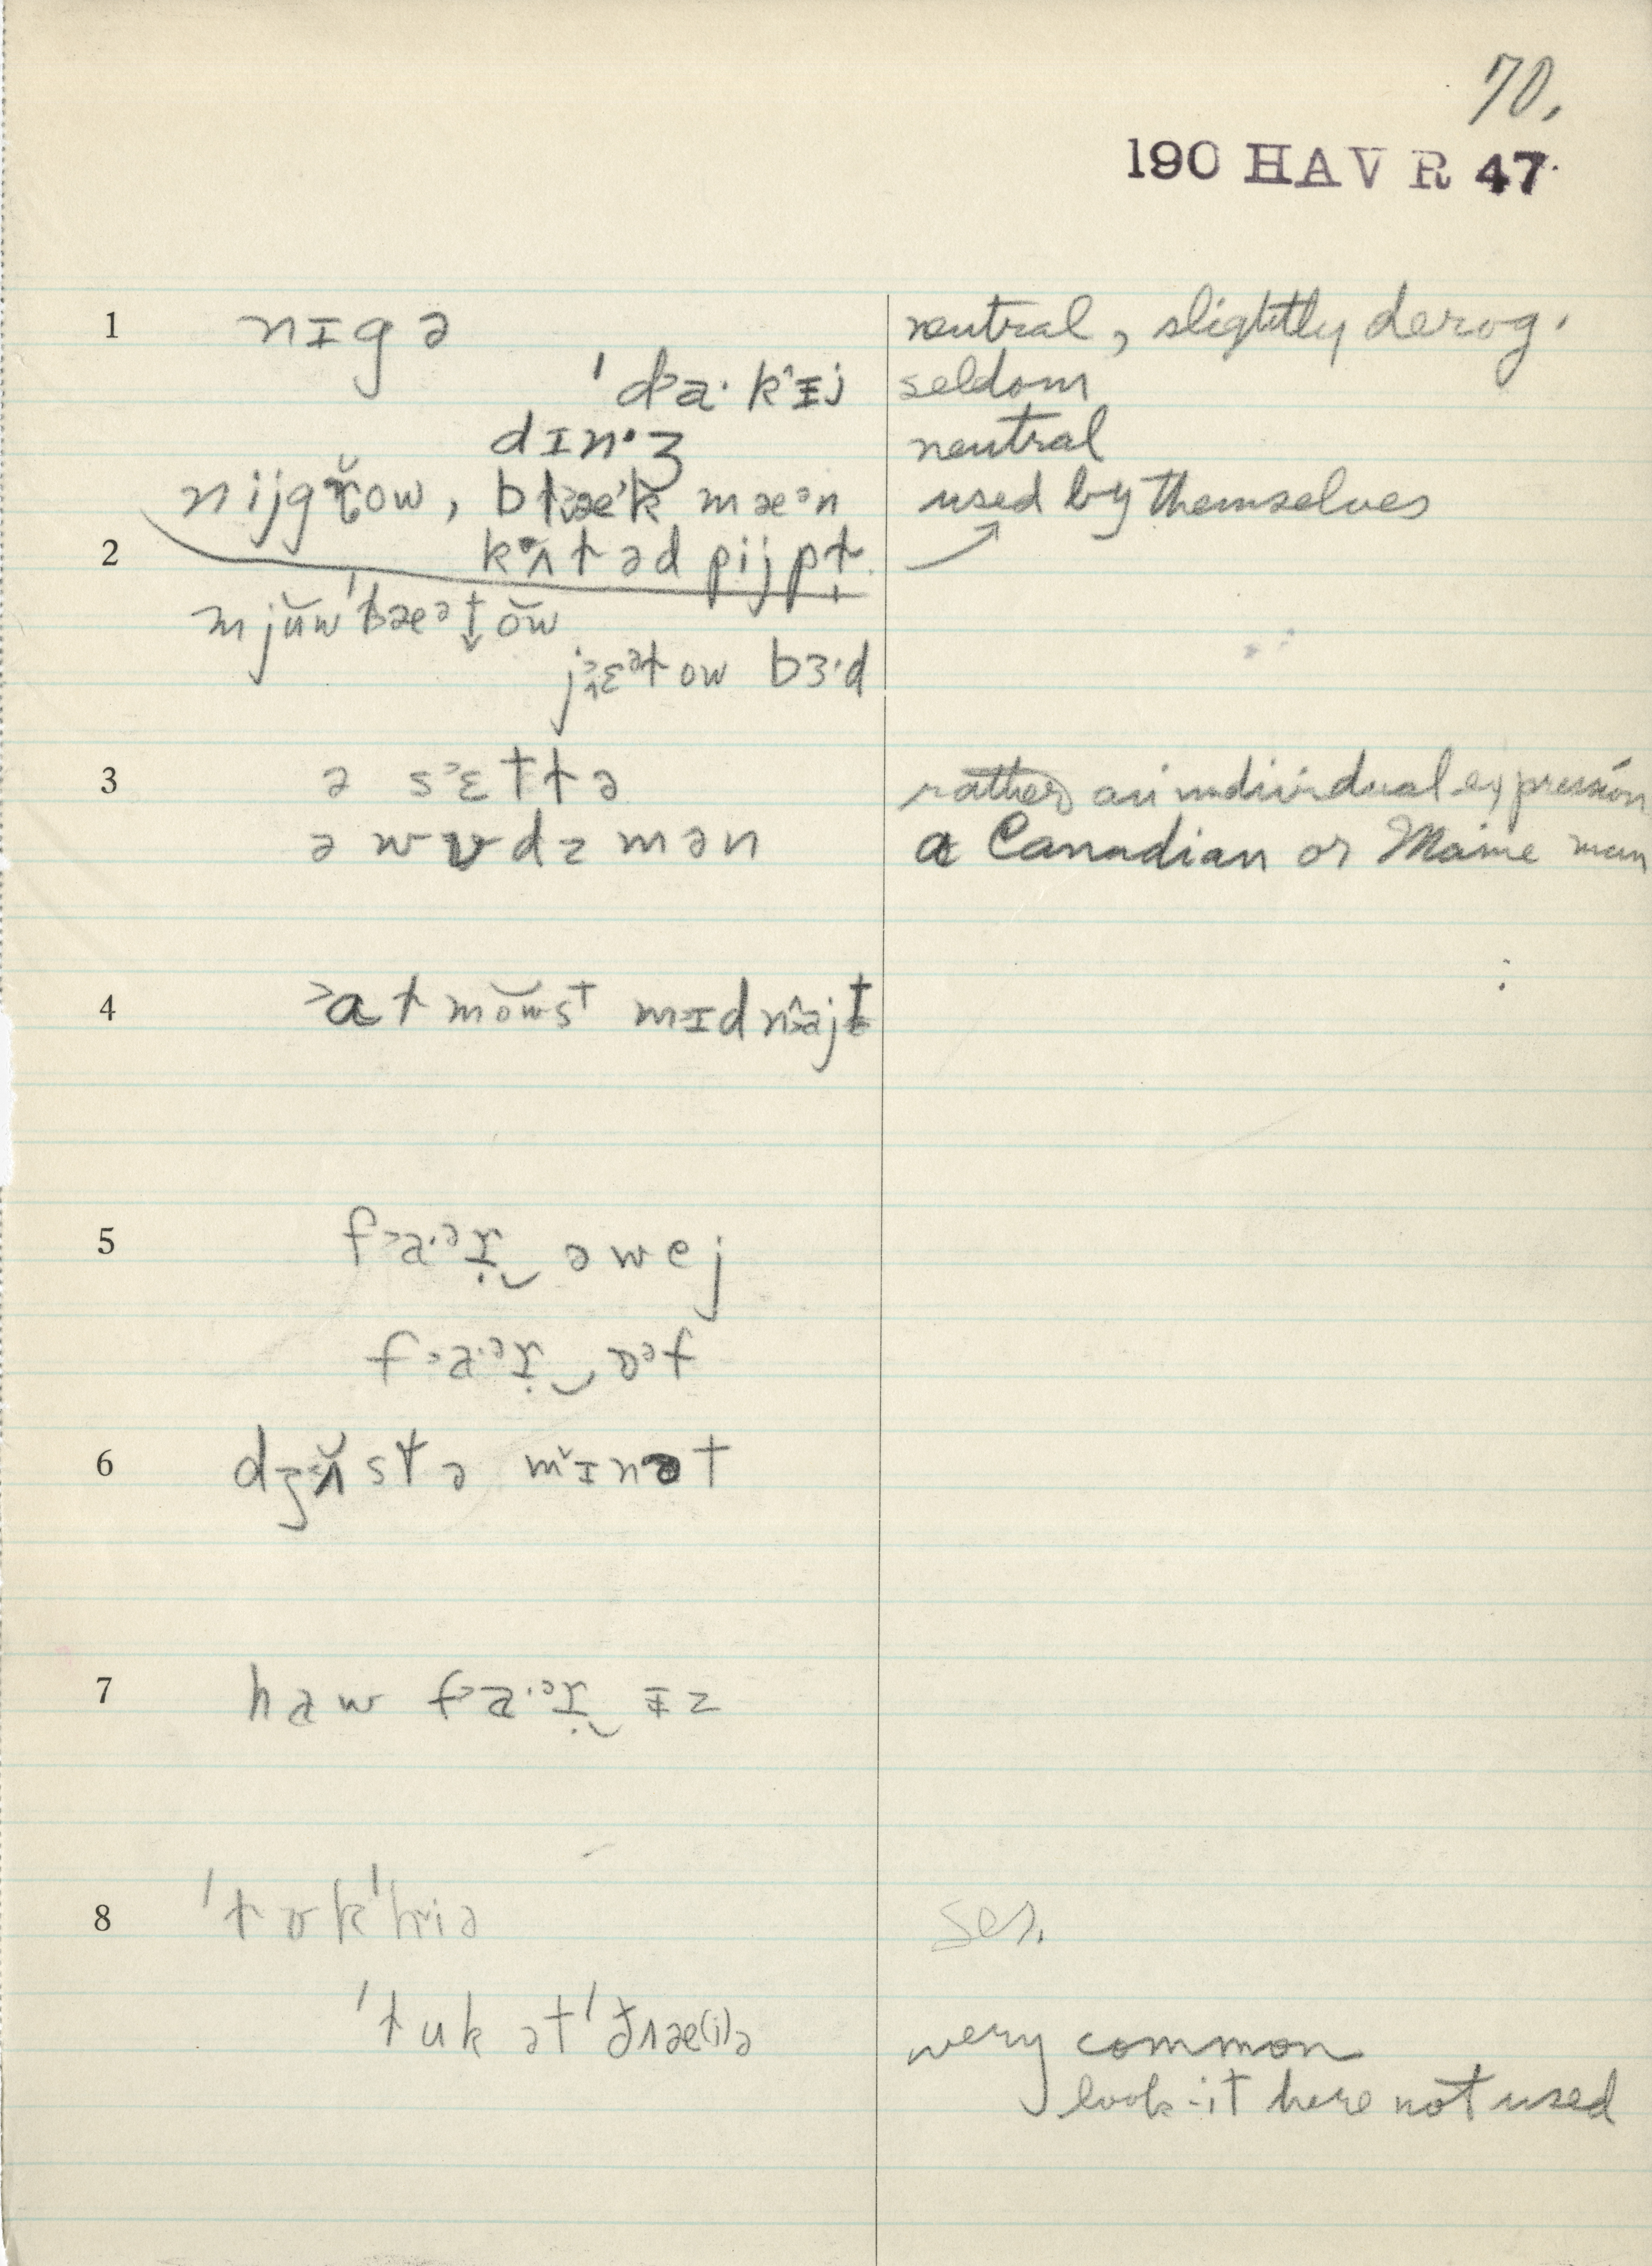 70.
190 HAVR 47
1 nɪgə neutral, slightly derog.
ˈda·kɪj seldom
dɪn·ʒ neutral
nijgɽow, blæˈk mæᵊn used by themselves
2 kʌləd pijpl
mjŭwˈlæᵊtŏw
jɛᵊlow bɜ·d
3 ə sɛtlə rather an individual expression
ə wʊdzmən a Canadian or Maine man
4 ɑlmŏwst mɪdnajt
5 fa·ᵊɽ‿əwej
fa·ᵊɽ‿ɒᵊf
6 dʒʌ̆stə mɪnət
7 haw fa·ᵊɽ‿ɪz
8 ˈlʊkˈhiə ses.
ˈlʊk ətˈðæ(i)ə very common
look-it here not used